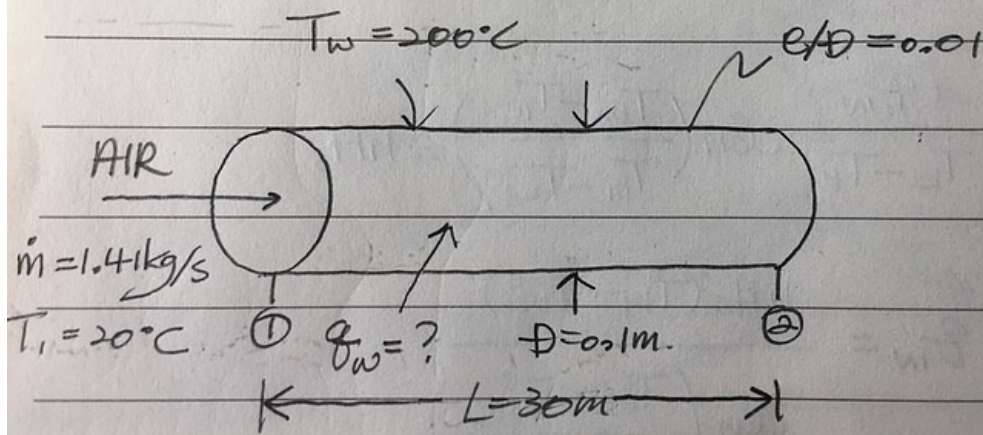 Tw = 200°C
e/D = 0.01
AIR
ṁ = 1.41kg/s
T₁ = 20°C
①
qw = ?
D = 0.1m.
②
L = 30m